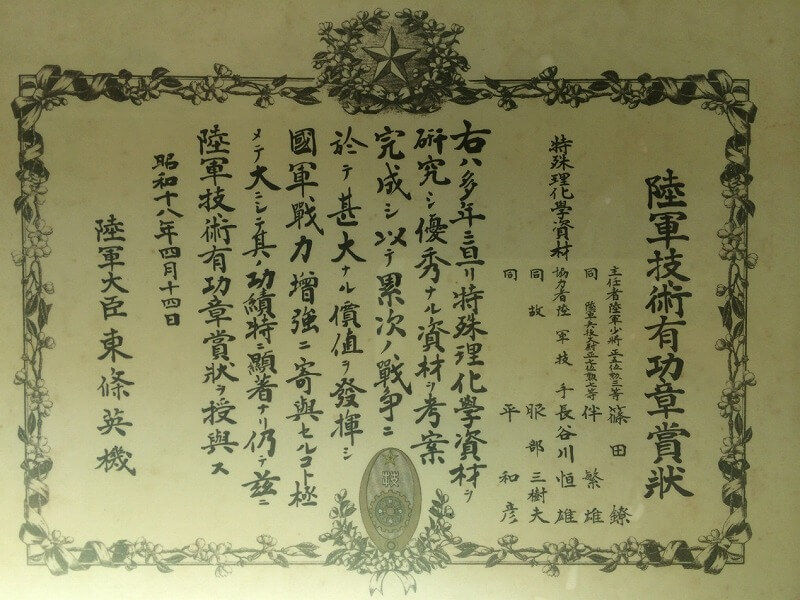 陸軍技術有功章賞状
主任者陸軍少將正五位勲三等 篠田鐐
同 陸軍兵技大尉正七位勲七等 伴繁雄
特殊理化學資材 協力者陸軍技手 長谷川恒雄
同故 服部三樹夫
同 平和彦
右ハ多年ニ亘リ特殊理化學資材ヲ
研究シ優秀ナル資材ヲ考案
完成シ以テ累次ノ戰争ニ
於テ甚大ナル價値ヲ發揮シ
國軍戰力増強ニ寄與セルコト極
メテ大ニシテ其ノ功績特ニ顯著ナリ仍テ茲ニ
陸軍技術有功章賞狀ヲ授與ス
昭和十八年四月十四日
陸軍大臣 東條英機